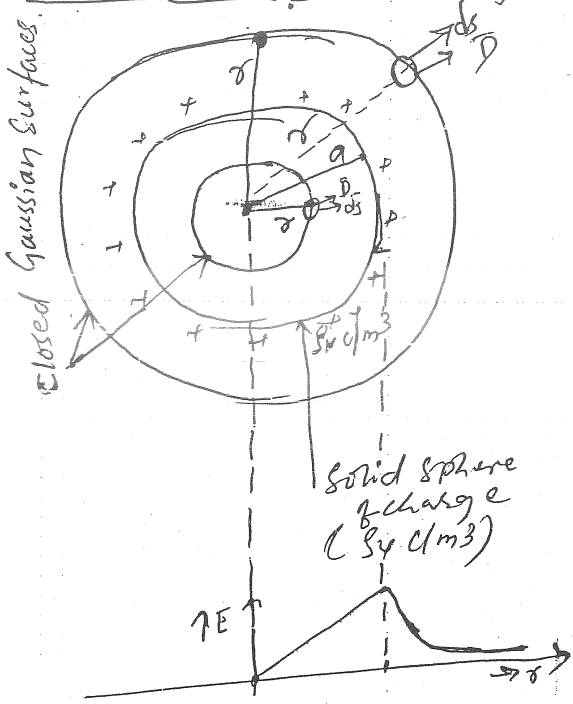 ds
D
r
Closed Gaussian Surfaces.
+
+
+
r
+
a
+
+
D
ds
r
+
+
+
+
+
+
+
ρv c/m3
solid sphere
of charge
(ρv c/m3)
↑E
→ r